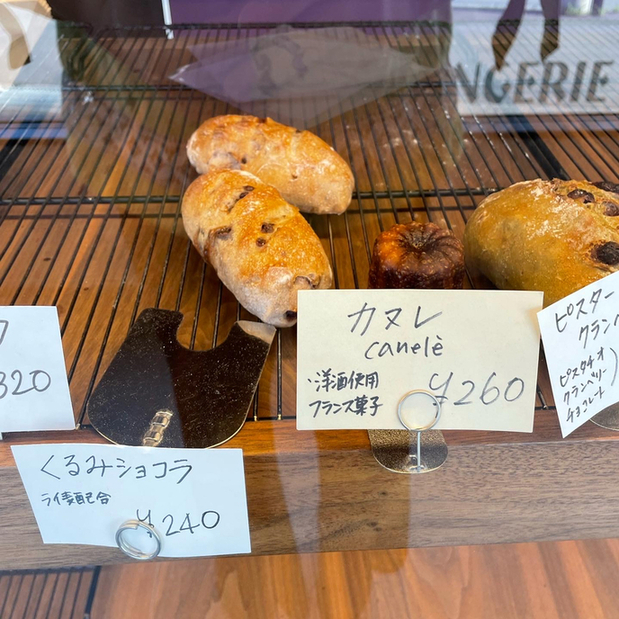 NGERIE
320
カヌレ
canelè
・洋酒使用
フランス菓子
¥260
ピスタ
クラン
ピスタチオ
クランベリー
チョコレート
くるみショコラ
ライ麦配合
¥240